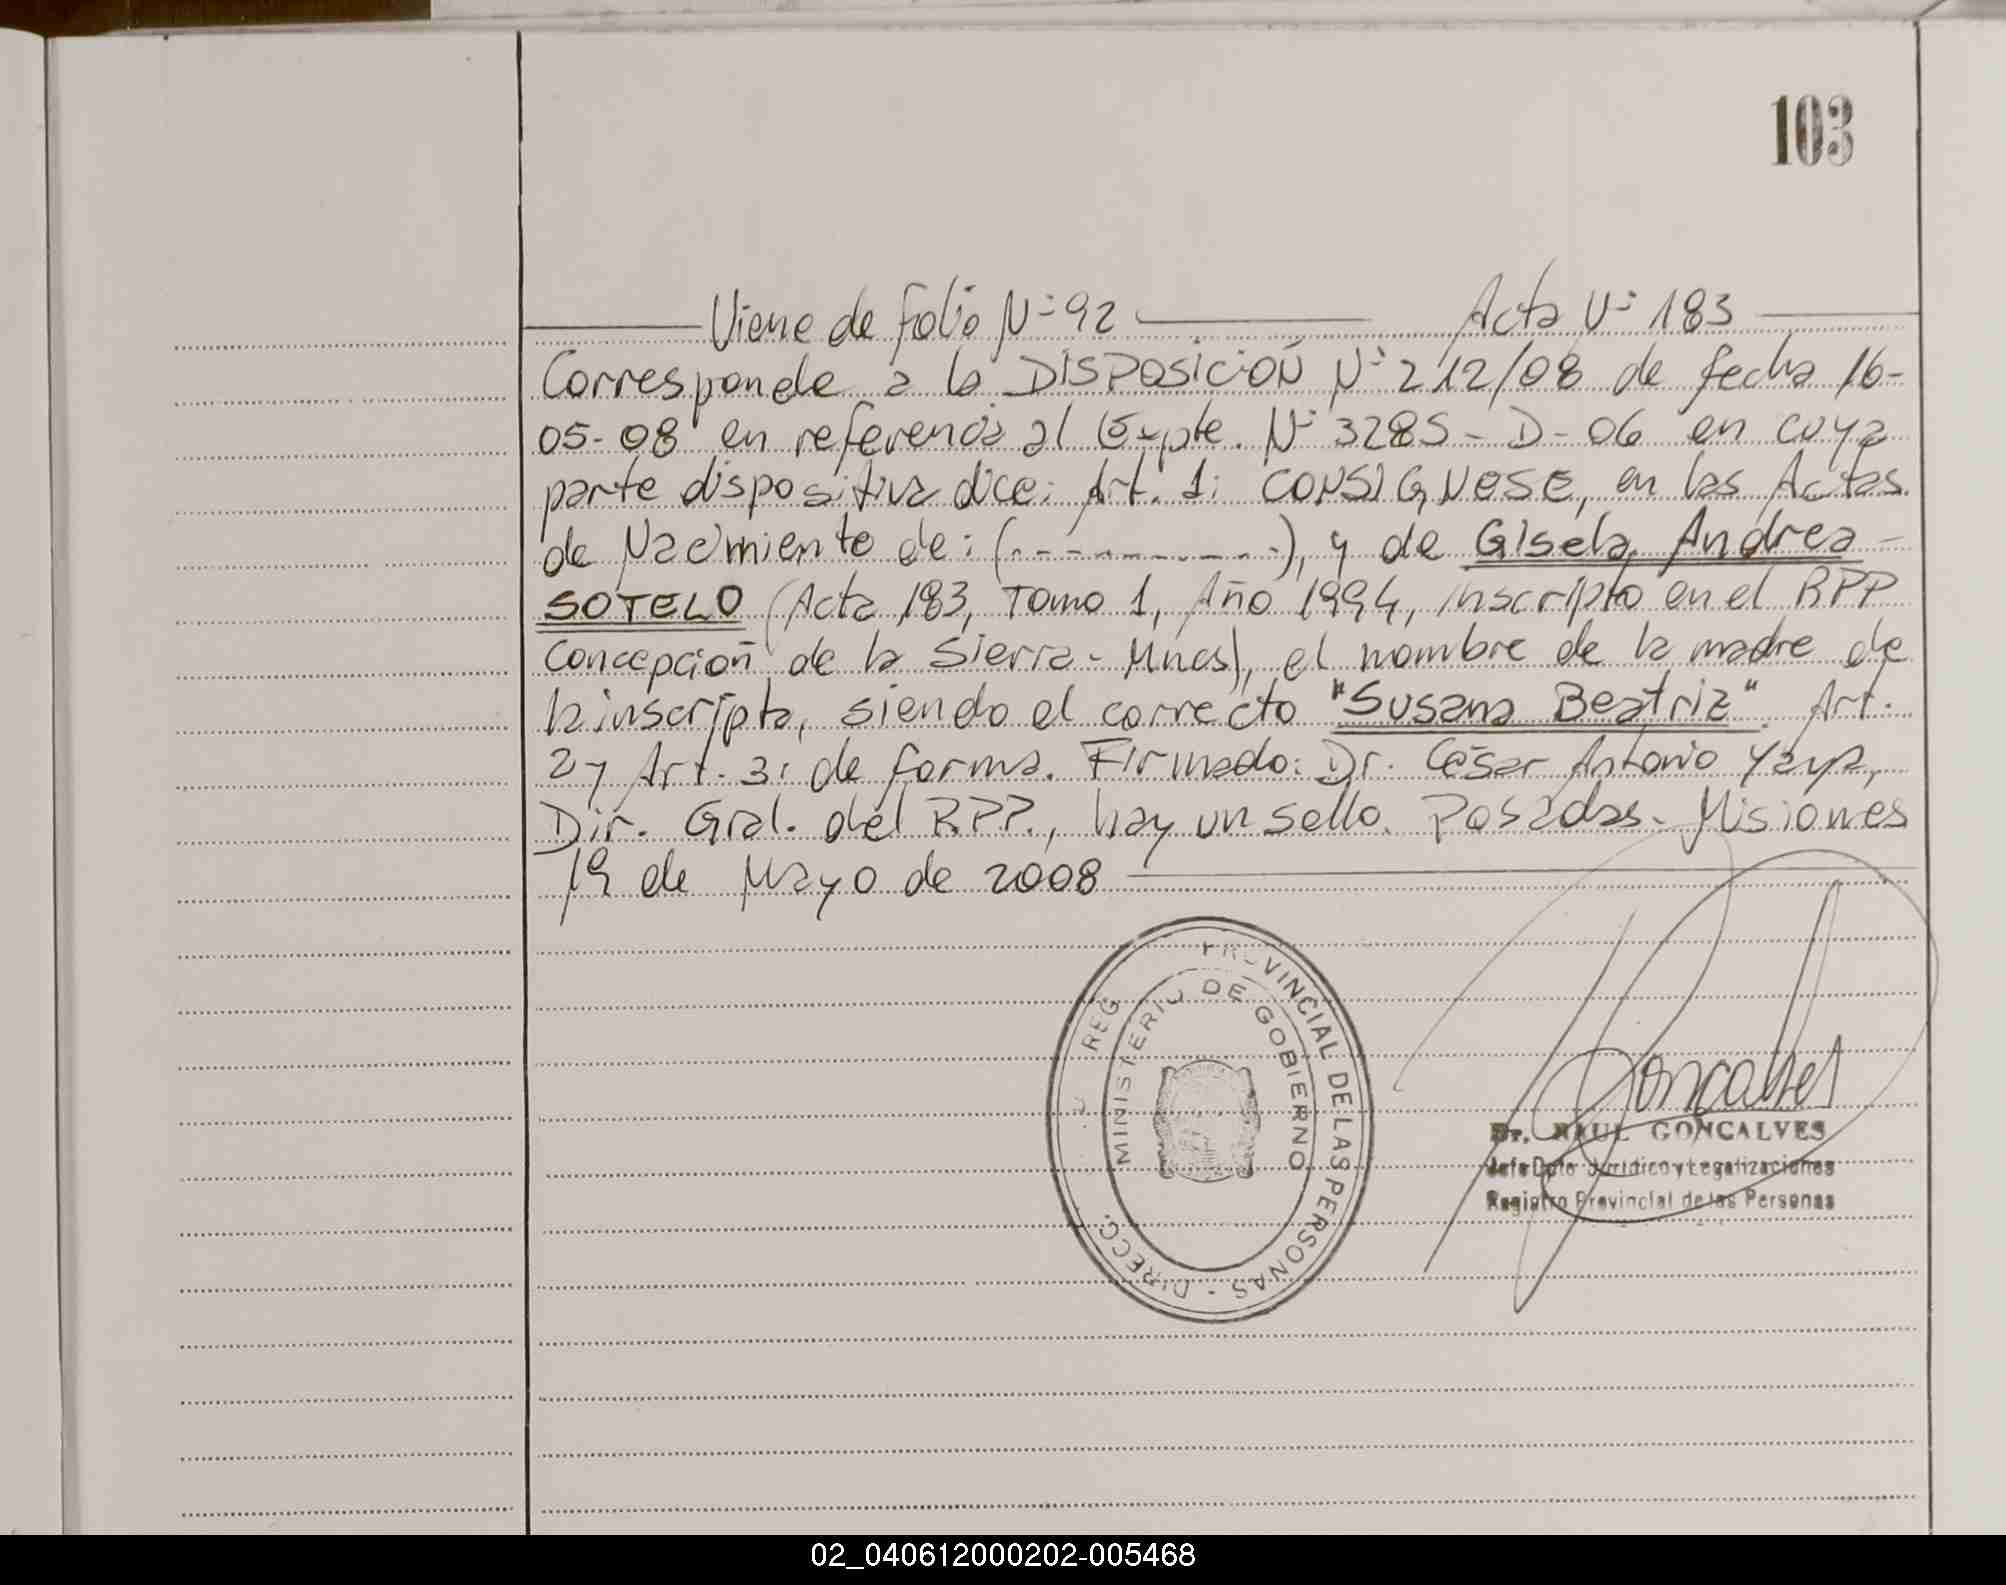 103
Viene de folio Nº 92 Acta Nº 183
Corresponde a la DISPOSICIÓN Nº 212/08 de fecha 16-
05-08 en referencia al Expte. Nº 3285-D-06 en cuya
parte dispositiva dice: Art. 1: CONSIGNESE, en las Actas
de Nacimiento de: (-----------), y de Gisela Andrea
SOTELO (Acta 183, Tomo 1, Año 1994, inscripto en el RPP
Concepción de la Sierra - Mnes), el nombre de la madre de
la inscripta, siendo el correcto "Susana Beatriz". Art.
2 y Art. 3: de forma. Firmado: Dr. César Antonio Yaya,
Dir. Gral. del RPP., hay un sello. Posadas - Misiones
19 de Mayo de 2008
PROVINCIAL DE LAS PERSONAS - DIRECC.
REG
MINISTERIO DE GOBIERNO
Goncalves
Dr. RAUL GONCALVES
Jefe Dpto Jurídico y Legalizaciones
Registro Provincial de las Personas
02_040612000202-005468